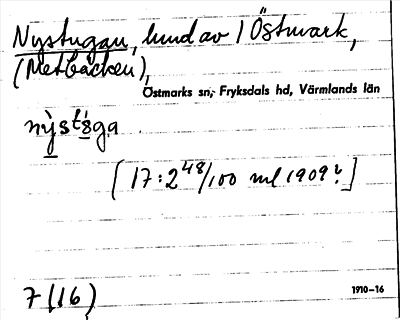 Nystugan, lund av 1 Östmark,
(Metbäcken),
Östmarks sn, Fryksdals hd, Värmlands län
[17:2⁴⁸/100 ml 1909?]
7 (16)
1910-16